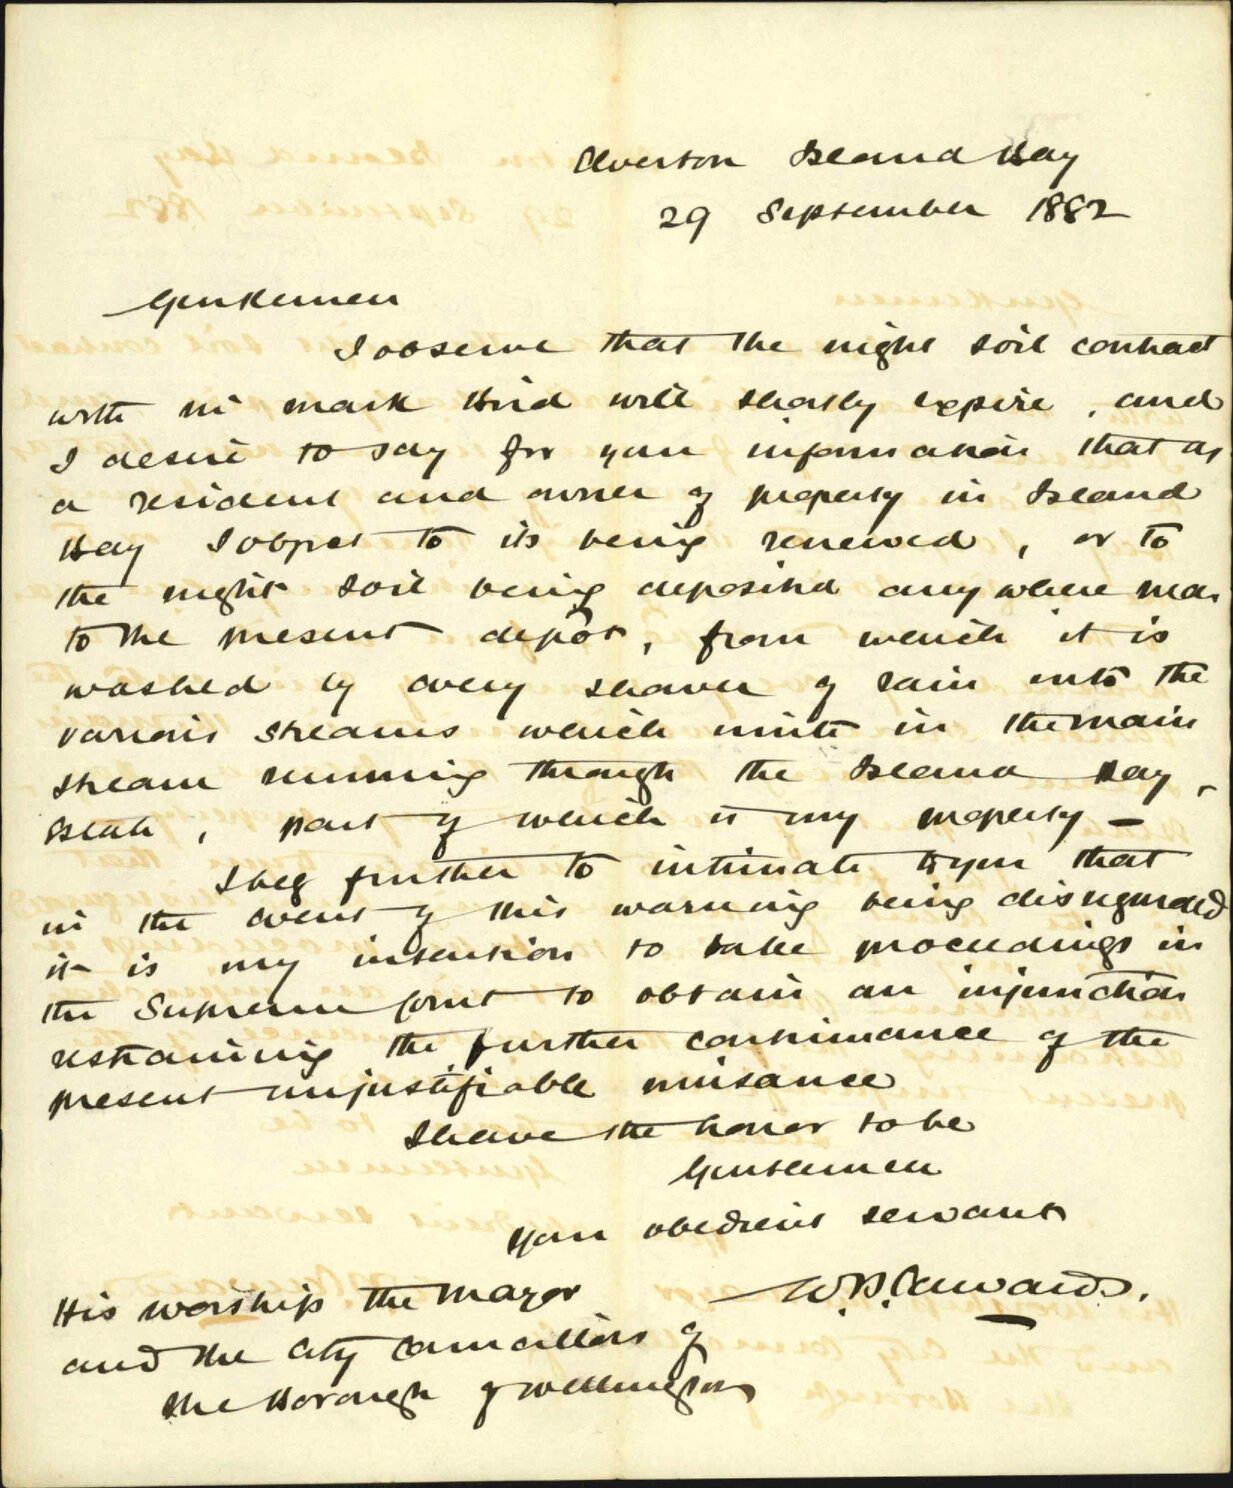 Overton Island Bay
29 September 1882
Gentlemen
I observe that the night soil contract
with Mr Mark Hind will shortly expire, and
I desire to say for your information that as
a resident and owner of property in Island
Bay I object to its being renewed, or to
the night soil being deposited any where near
to the present depôt, from which it is
washed by every shower of rain into the
various streams which unite in the main
stream running through the Island Bay,
Estate, part of which is my property –
I beg further to intimate to you that
in the event of this warning being disregarded
it is my intention to take proceedings in
the Supreme Court to obtain an injunction
restraining the further continuance of the
present unjustifiable nuisance
I have the honor to be
Gentlemen
Your obedient servant
W. B. Edwards.
His worship the Mayor
and the City Councillors of
the Borough of Wellington